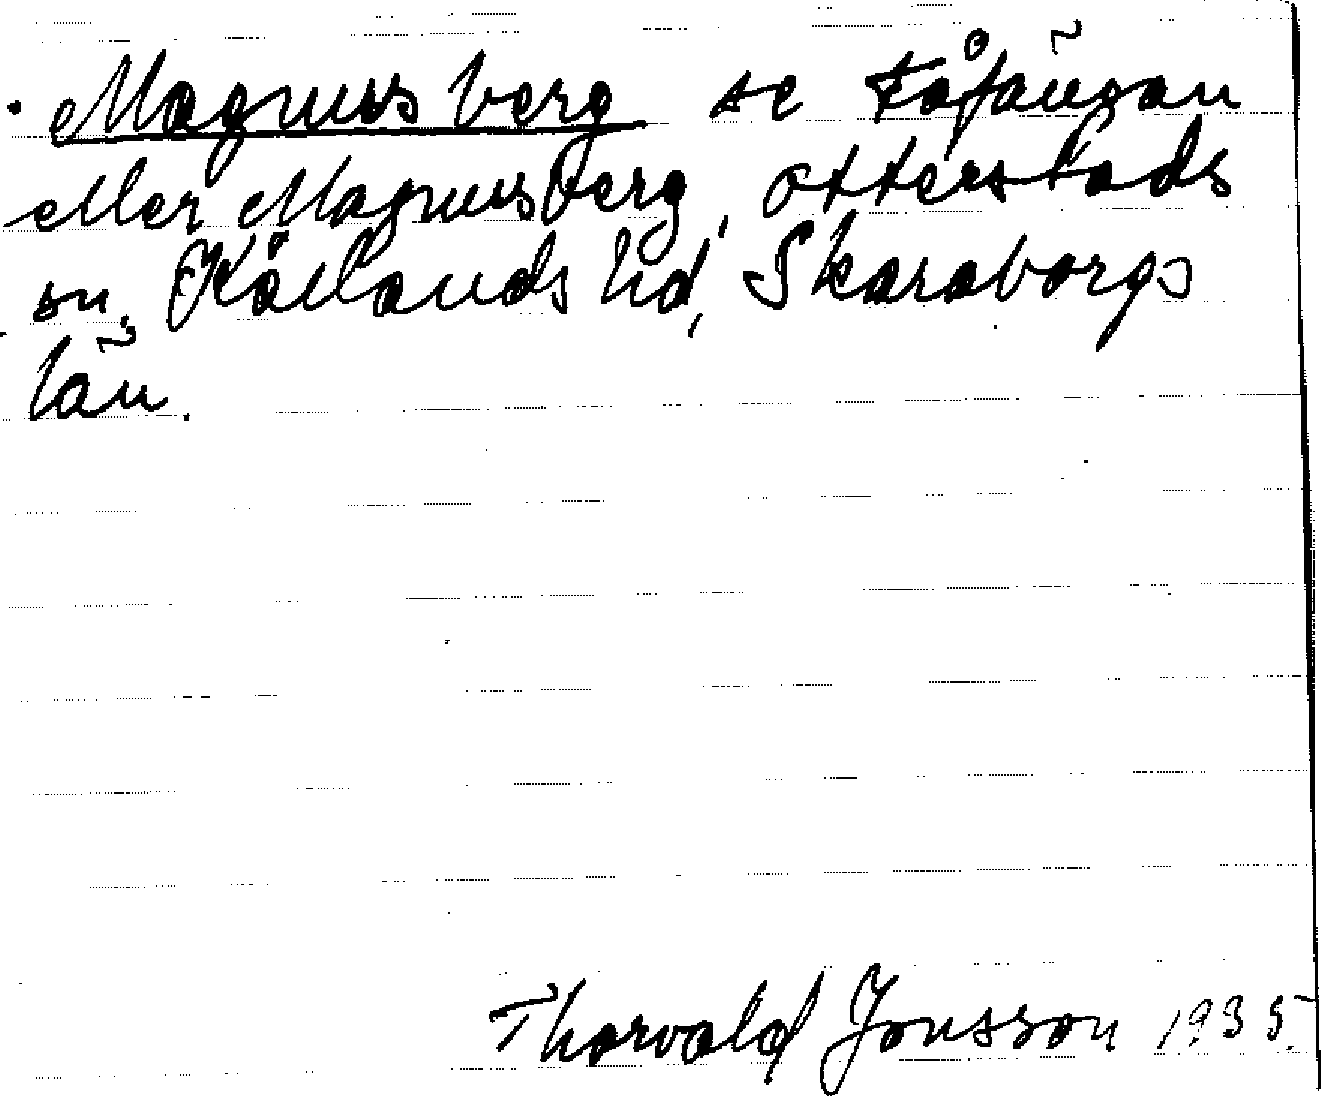 Magnusberg se Fåfängan
eller Magnusberg, Otterstads
sn. Kållands hd, Skaraborgs
län.
Thorvald Jonsson 1935.